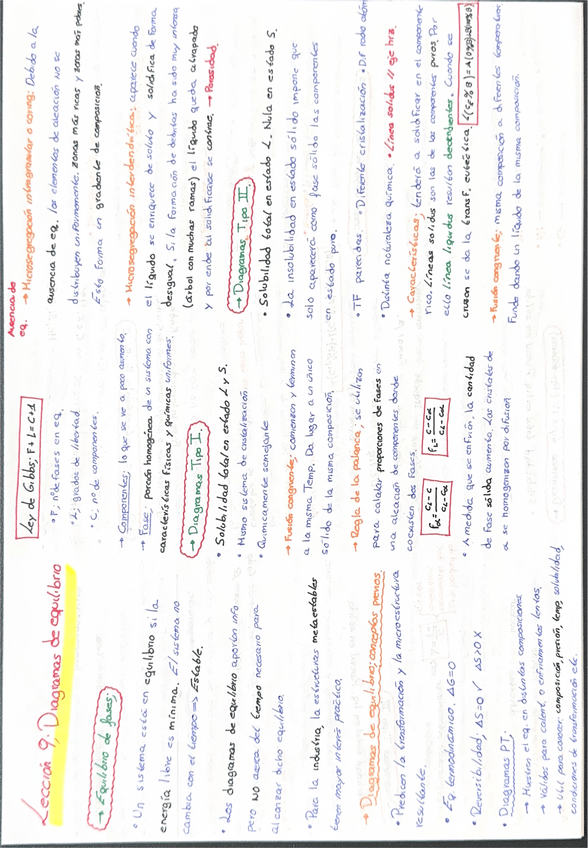 Lección 9: Diagramas de equilibrio
→ Equilibrio de fases;
• Un sistema está en equilibrio si la
energía libre es mínima. El sistema no
cambia con el tiempo => Estable.
• Los diagramas de equilibrio aportan info
pero NO acerca del tiempo necesario para
alcanzar dicho equilibrio.
• Para la industria, las estructuras metaestables
tienen mayor interés práctico.
→ Diagramas de equilibrio; conceptos previos.
• Predicen la transformación y la microestructura
resultante.
• Eq termodinámico, ΔG=0
• Reversibilidad, ΔS=0 √ ΔS>0 X
• Diagramas PT;
→ Muestran el eq en distintas composiciones
→ Válidos para calent. o enfriamientos lentos,
→ Util para conocer: composición, presión, temp, solubilidad,
condiciones de transformación etc.
Ley de Gibbs; F+L=C+1
• F, nº de fases en eq
• L; grados de libertad.
• C; nº de componentes.
→ Componentes; lo que se ve a poco aumento,
→ Fase; porción homogénea de un sistema con
características físicas y químicas uniformes.
→ Diagramas Tipo I.
• Solubilidad total en estado L y S.
• Mismo sistema de cristalización.
• Quimicamente semejante
→ Fusión congruente; comienzan y terminan
a la misma Temp. Da lugar a un único
sólido de la misma composición.
→ Regla de la palanca; se utilizan
para calcular proporciones de fases en
una aleación de componentes donde
coexisten dos fases.
Fα= CL-C / CL-Cα
FL= C-Cα / CL-Cα
• A medida que se enfría, la cantidad
de fase sólida aumenta. Los cristales de
α se homogenizan por difusión
Ausencia de
eq.
→ Microsegregación intragranular o coring: Debido a la
ausencia de eq. los elementos de aleación no se
distribuyen uniformemente. zonas más ricas y zonas más pobres.
Esto forma un gradiente de composición.
→ Microsegregación interdendrítica; aparece cuando
el líquido se enriquece de soluto y solidifica de forma
desigual. Si la formación de dendritas ha sido muy intensa
(árbol con muchas ramas) el líquido queda atrapado
y por ende al solidificarse se contrae. → Porosidad.
→ Diagramas Tipo II.
• Solubilidad total en estado L. Nula en estado S.
• La insolubilidad en estado sólido impone que
solo aparecerá como fase sólida los componentes
en estado puro.
• TF parecidas • Diferente cristalización • Dif radio atóm
• Distinta naturaleza química. • Línea solidus // eje hrz.
→ Características; tenderá a solidificar en el componente
puro. Líneas solidus son las de los componentes puros. Por
ello línea liquidus resultan decrecientes. Cuando se
cruzan se da la transf. eutéctica.
→ Fusión congruente; misma composición a diferentes temperaturas.
Funde dando un líquido de la misma composición.